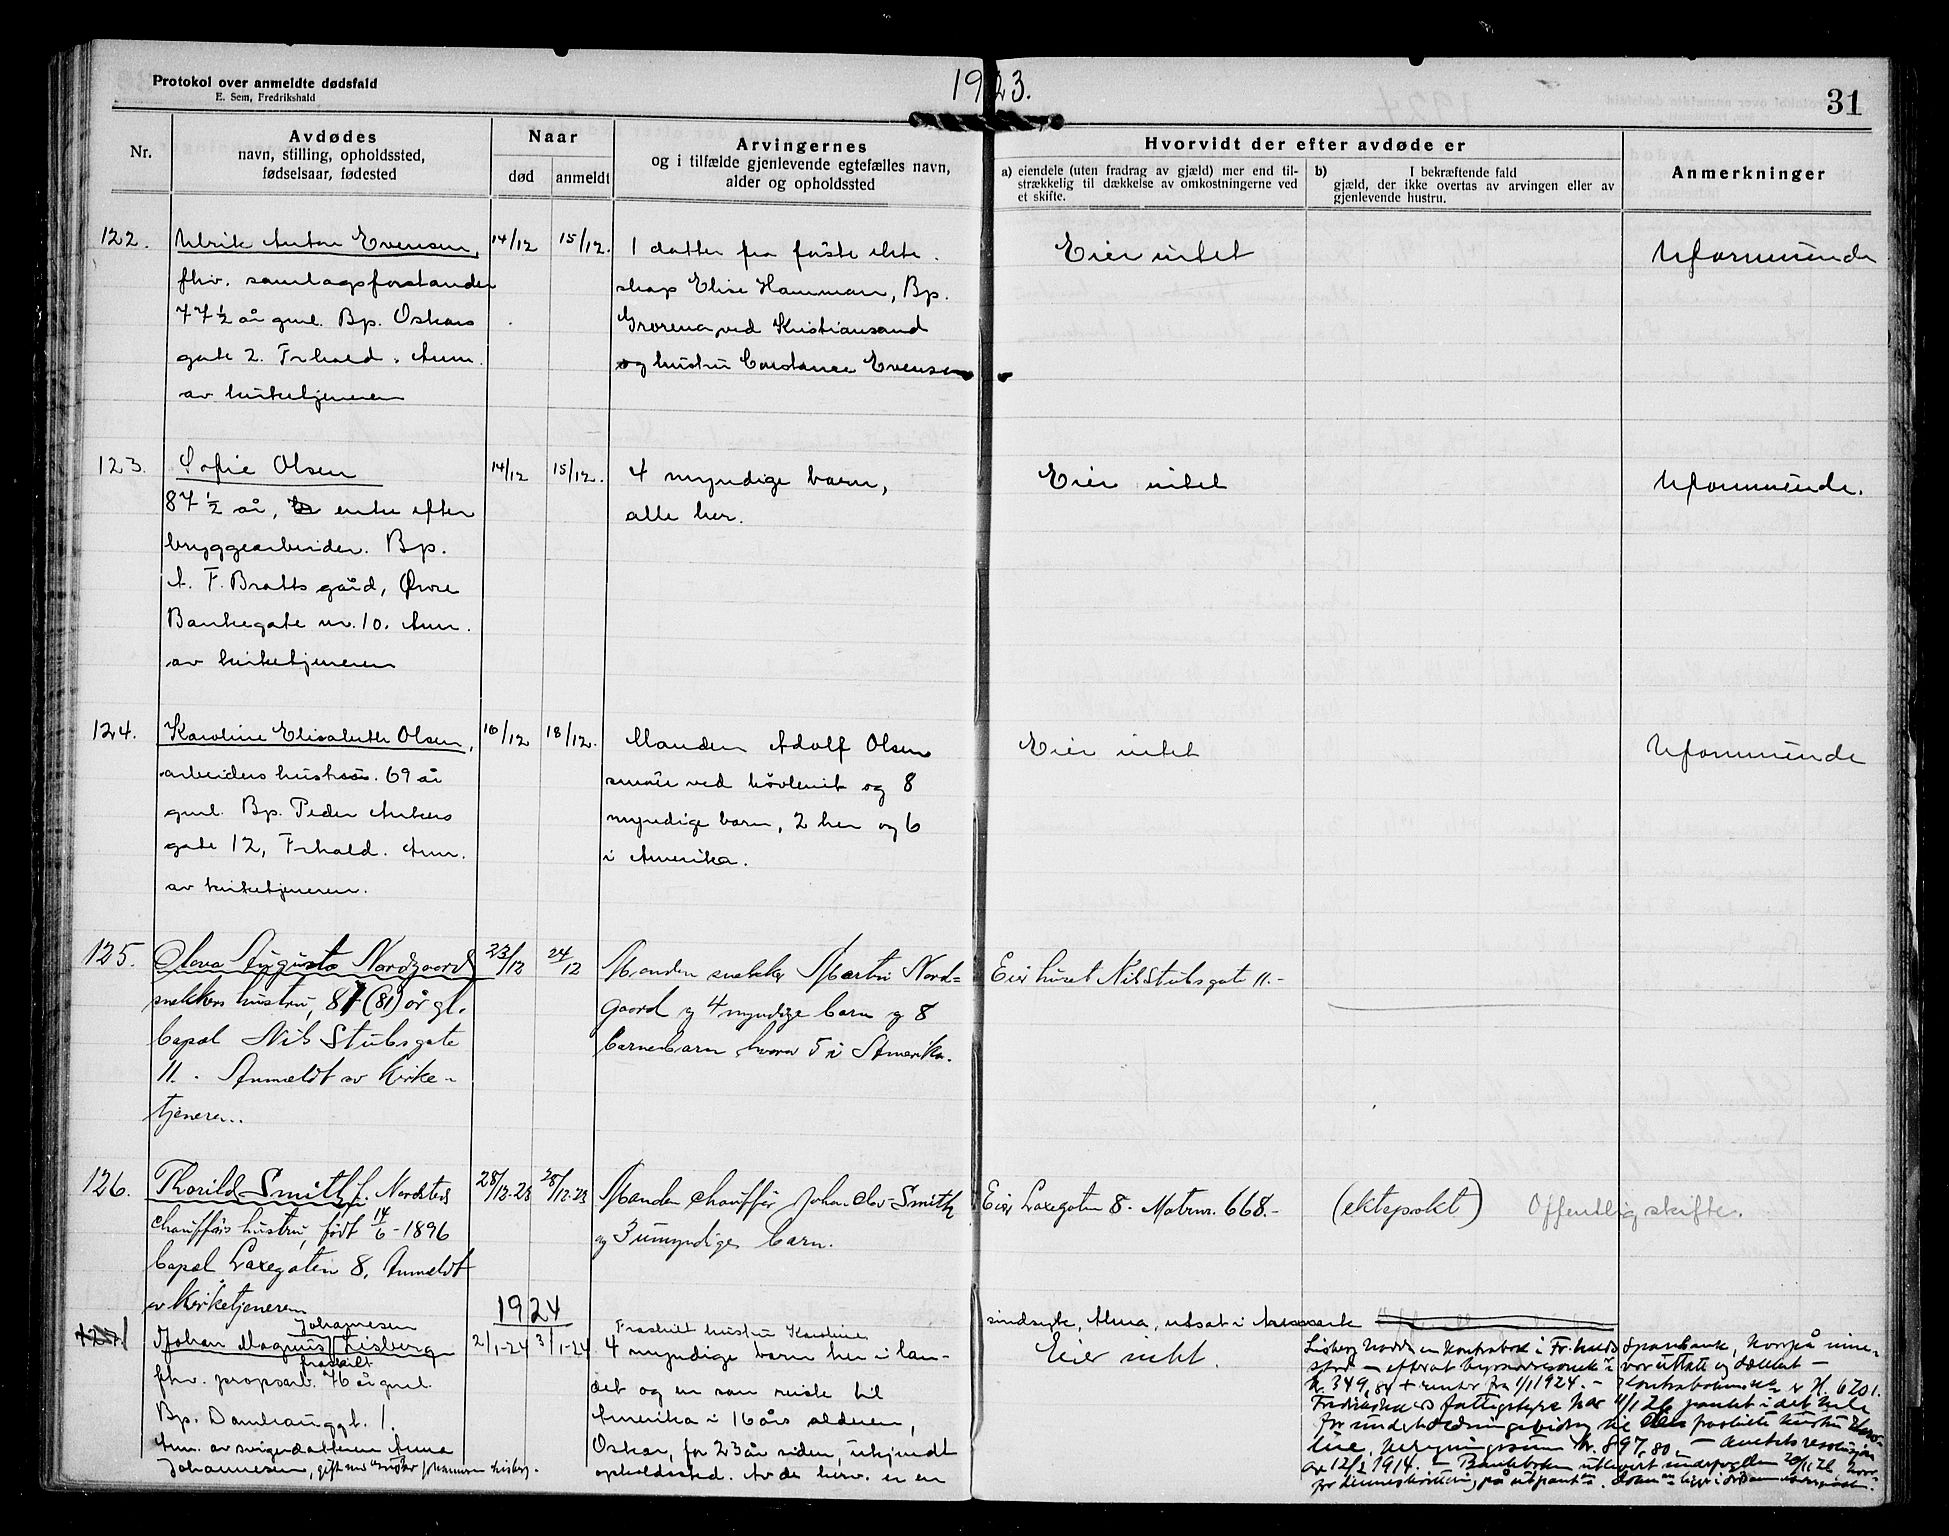 Protokol over anmeldte dødsfald
E. Sem, Fredrikshald
1923.
31
Nr.
Avdødes
navn, stilling, opholdssted,
fødselsaar, fødested
Naar
død
anmeldt
Arvingernes
og i tilfælde gjenlevende egtefælles navn,
alder og opholdssted
Hvorvidt der efter avdøde er
a) eiendele (uten fradrag av gjæld) mer end til-
strækkelig til dækkelse av omkostningerne ved
et skifte.
b) I bekræftende fald
gjæld, der ikke overtas av arvingen eller av
gjenlevende hustru.
Anmerkninger
122.
Ulrik Anton Evensen,
fhv. samlagsforstander
77½ år gml. Bp. Oskars
gate 2. Frhald. Anm.
av kirketjeneren
14/12
15/12.
1 datter fra første ekte-
skap Elise Hamman, Bp.
ved Kristiansand
og hustru Constance Evensen
Eier intet
Uformuende
123.
Sofie Olsen
87½ år, enke efter
bryggearbeider. Bp.
A. F. Bratts gård, Øvre
Bankegate nr. 10. Anm.
av kirketjeneren
14/12
15/12.
4 myndige barn,
alle her.
Eier intet
Uformuende.
124.
Karoline Elisabeth Olsen,
arbeiders hustru. 69 år
gml. Bp. Peder Ankers
gate 12, Frhald. Anm.
av kirketjeneren.
16/12
18/12.
Manden Adolf Olsen
ved høvleriet og 8
myndige barn, 2 her og 6
i Amerika.
Eier intet
Uformuende
125.
Olava Augusta Nordgaard
snekkers hustru, 81 (81) år gl.
bopæl Nils Stubsgate
11. - Anmeldt av Kirke-
tjeneren..
23/12
24/12
Manden snekker Martin Nord=
gaard og 4 myndige barn og 8
barnebarn hvorav 5 i Amerika.
Eier huset Nil Stubsgate 11.-
126.
Thorild Smith f.
chaufførs hustru, født 14/6-1896
bopæl Laxegaten 8. Anmeldt
av Kirketjeneren
28/12-23
28/12-23
Manden chauffør Johan Olav Smith
og 3 umyndige barn.
Eier Laxegaten 8. Matrnr. 668.-
(ektepakt)
Offentlig skifte.
1924
1
Johannesen
Johan Magnus Lisberg
fraskilt
fhv. propsarb. 76 år gml.
Bp. Damhauggt. 1.
Anm. av svigerdatteren Anna
Johannesen, gift med
2/1-24
3/1-24
Fraskilt hustru Karoline
4 myndige barn her i lan-
det og en søn reiste til
Amerika i 16 års alderen,
Oskar, for 23 år siden, ukjendt
opholdssted. Av de herv. er en
sindsyk, Alma, utsat i
Eier intet.
Lisberg hadde en kontrabok i Fr.halds Sparebank, hvorpå inne-
stod -
kr. 349,84 + renter fra 1/1 1924. -
Fredrikshald fattigstyre har
for underholdningsbidrag til fraskilte hustru Karo-
line, kr. 897,80. -
av 12/2 1914. - Bankboken utlevert